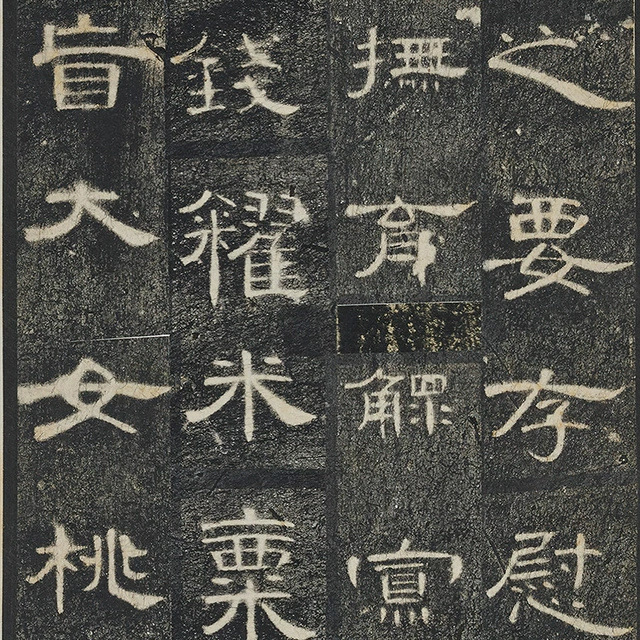 之要存慰
撫育鰥寡
錢糴米粟
盲大女桃